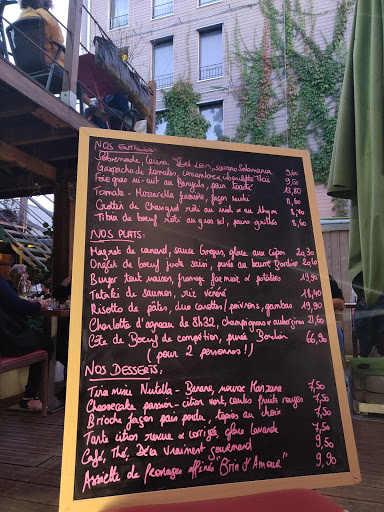 NOS ENTREES:
Sobremade, Cecina, "Bel Loin, saucono Salamanca 9,60
Gaspacho de tomates, concombre, chipolette Thaï 9,50
Foie gras mi-cuit au Banyuls, pain toasté 13,80
Tomate - Mozzarella fermière, façon sushi 8,60
Crottin de Chavignol rôti au miel et au thym 8,70
Tibia de boeuf rôti au gros sel, pains grillés 8,60
NOS PLATS:
Magret de canard, sauce Grecque, glace aux cèpes 20,30
Onglet de boeuf juste saisi, purée au beurre Bordier 20,40
Burger tout maison, fromage fermier et potatoes 19,90
Tataki de saumon, riz vénéré 18,40
Risotto de pâtes, duo carottes/poivrons, gambas 19,90
Charlotte d'agneau de 8h32, champignons et aubergines 21,60
Côte de Boeuf de compétition, purée Bordier 66,90
(pour 2 personnes!)
NOS DESSERTS:
Tira misu Nutella - Banane, mousse Manzana 7,50
Cheesecake passion - citron vert, coulis fruits rouges 7,50
Brioche façon pain perdu, tapios au choix 7,50
Tarte citron revue et corrigée, glace lavande 7,50
Café, Thé, Déca vraiment gourmand 9,90
Assiette de fromages affinés "Brin d'Amour" 9,90